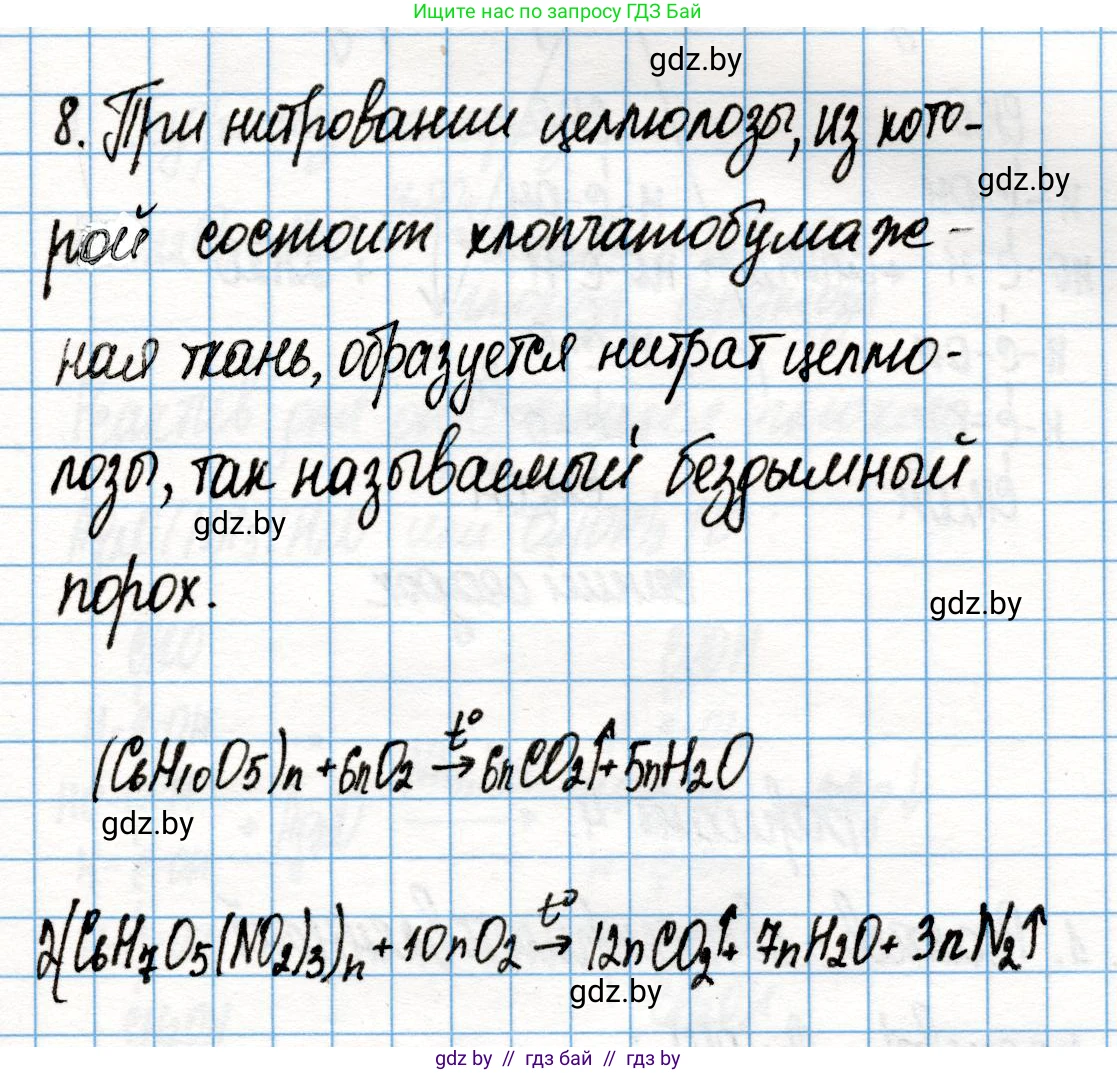 Ищите нас по запросу ГДЗ Бай
gdz.by
8. При нитровании целлюлозы, из кото-
gdz.by
рой состоит хлопчатобумаж-
ная ткань, образуется нитрат целлю-
лозы, так называемый бездымный
gdz.by
порох.
gdz.by
(C6H10O5)n + 6nO2 t° → 6nCO2↑ + 5nH2O
gdz.by
2(C6H7O5(NO2)3)n + 10nO2 t° → 12nCO2↑ + 7nH2O + 3nN2↑
gdz.by
gdz by // гдз бай // gdz by